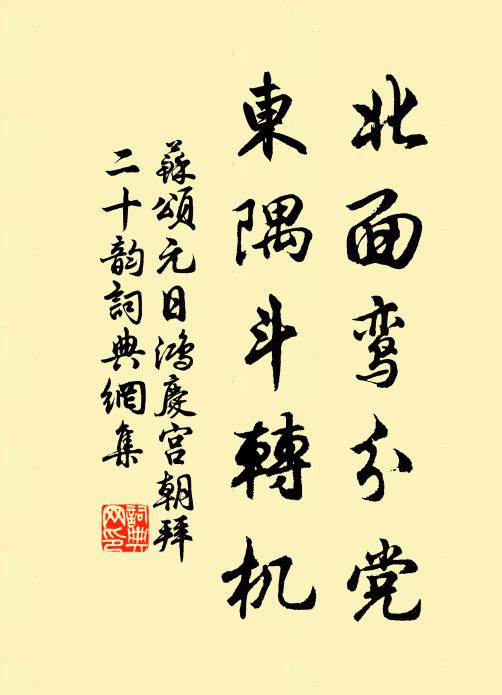 北面鸾分党
東隅斗轉机
蘇頌元日鴻慶宫朝拜
二十韵詞典網集
詞典网印